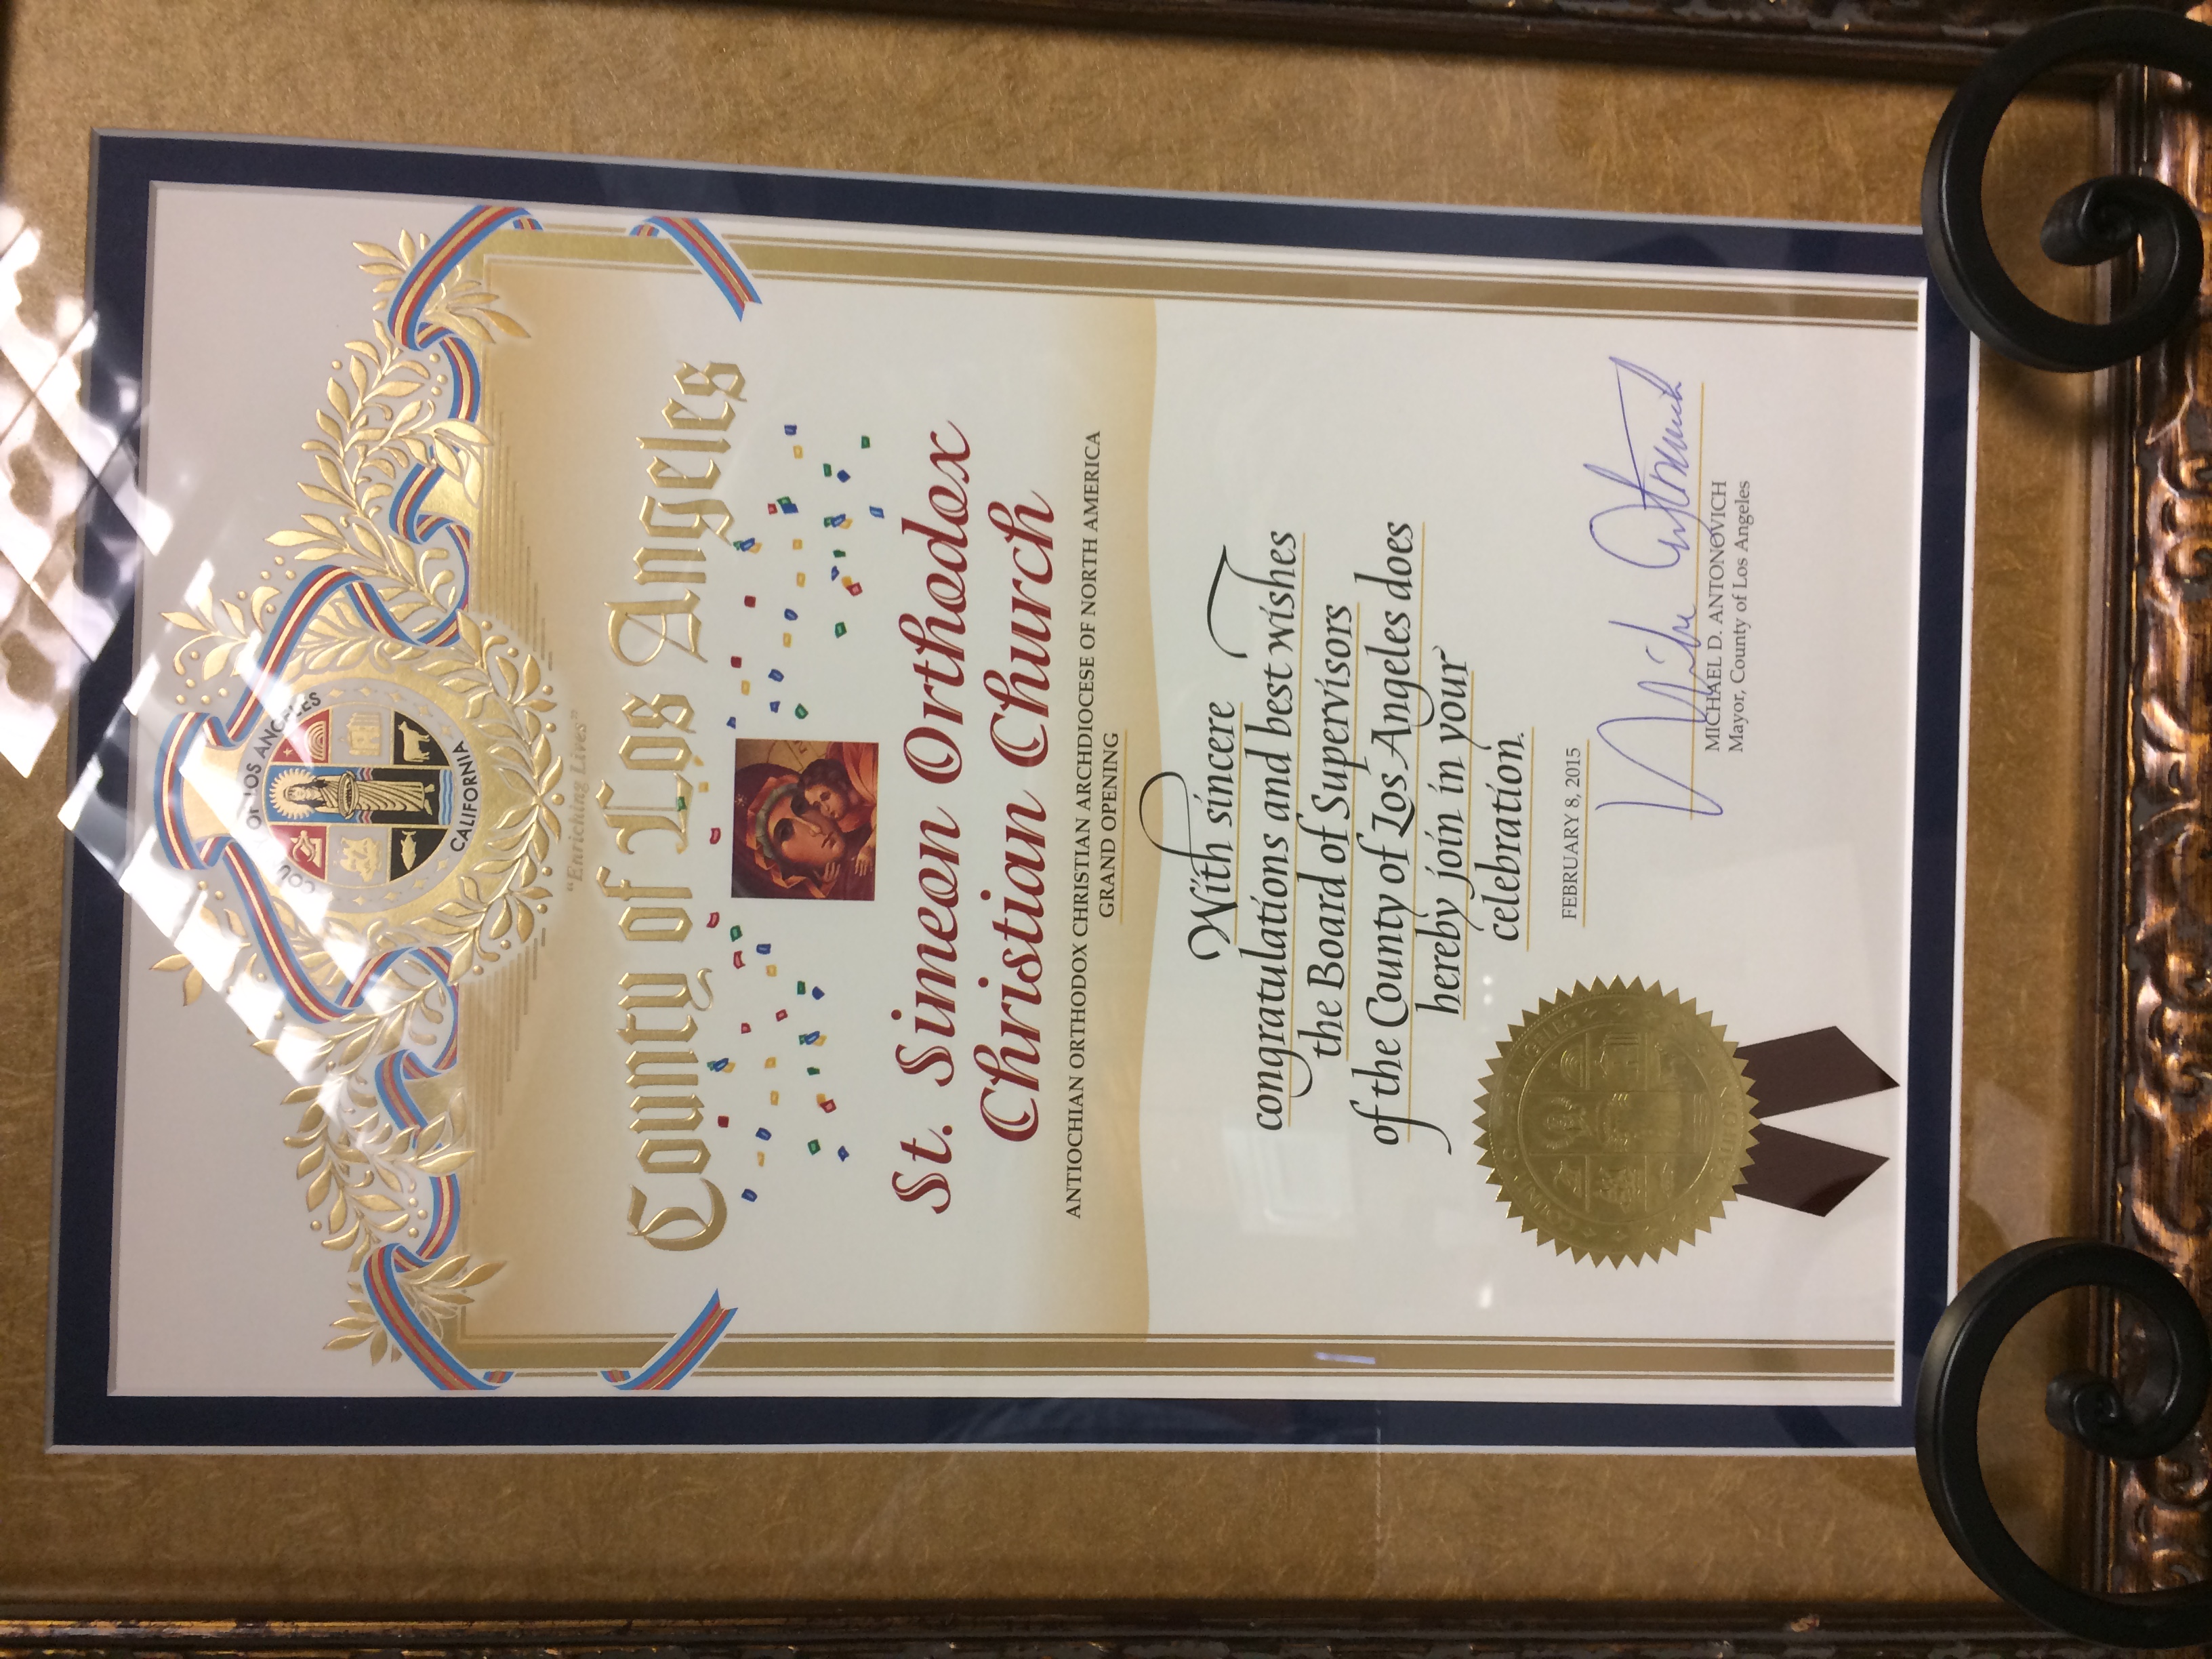 COUNTY OF LOS ANGELES
CALIFORNIA
"Enriching Lives"
County of Los Angeles
St. Simeon Orthodox
Christian Church
ANTIOCHIAN ORTHODOX CHRISTIAN ARCHDIOCESE OF NORTH AMERICA
GRAND OPENING
With sincere
congratulations and best wishes
the Board of Supervisors
of the County of Los Angeles does
hereby join in your
celebration.
FEBRUARY 8, 2015
Mike Antonovich
MICHAEL D. ANTONOVICH
Mayor, County of Los Angeles
COUNTY OF LOS ANGELES
CALIFORNIA